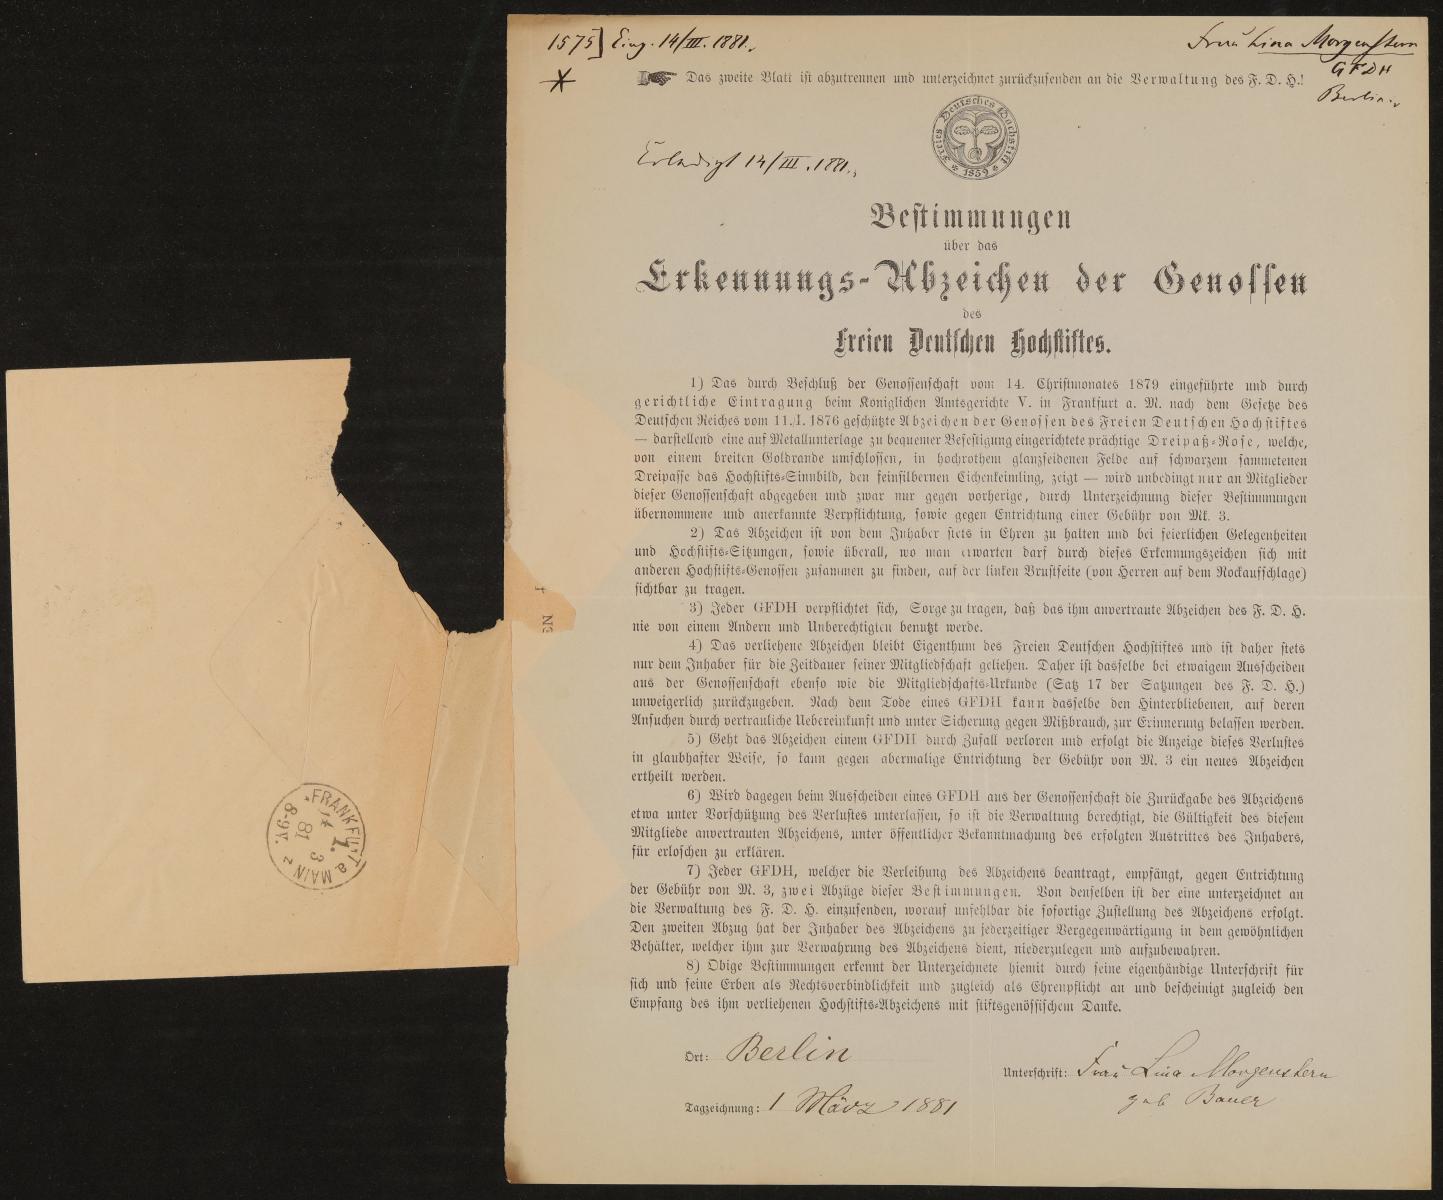 1575] Eing. 14/III. 1881.
Frau Lina Morgenstern
GFDH
Berlin.
Das zweite Blatt ist abzutrennen und unterzeichnet zurückzusenden an die Verwaltung des F. D. H.!
Freies Deutsches Hochstift
* 1859 *
Erledigt 14/III. 1881.
Bestimmungen
über das
Erkennungs-Abzeichen der Genossen
des
Freien Deutschen Hochstiftes.
1) Das durch Beschluß der Genossenschaft vom 14. Christmonates 1879 eingeführte und durch
gerichtliche Eintragung beim Königlichen Amtsgerichte V. in Frankfurt a. M. nach dem Gesetze des
Deutschen Reiches vom 11./I. 1876 geschützte Abzeichen der Genossen des Freien Deutschen Hochstiftes
— darstellend eine auf Metallunterlage zu bequemer Befestigung eingerichtete prächtige Dreipaß-Rose, welche,
von einem breiten Goldrande umschlossen, in hochrothem glanzseidenen Felde auf schwarzem sammetenen
Dreipasse das Hochstifts-Sinnbild, den feinsilbernen Eichenkeimling, zeigt — wird unbedingt nur an Mitglieder
dieser Genossenschaft abgegeben und zwar nur gegen vorherige, durch Unterzeichnung dieser Bestimmungen
übernommene und anerkannte Verpflichtung, sowie gegen Entrichtung einer Gebühr von Mk. 3.
2) Das Abzeichen ist von dem Inhaber stets in Ehren zu halten und bei feierlichen Gelegenheiten
und Hochstifts-Sitzungen, sowie überall, wo man erwarten darf durch dieses Erkennungszeichen sich mit
anderen Hochstifts-Genossen zusammen zu finden, auf der linken Brustseite (von Herren auf dem Rockaufschlage)
sichtbar zu tragen.
3) Jeder GFDH verpflichtet sich, Sorge zu tragen, daß das ihm anvertraute Abzeichen des F. D. H.
nie von einem Andern und Unberechtigten benutzt werde.
4) Das verliehene Abzeichen bleibt Eigenthum des Freien Deutschen Hochstiftes und ist daher stets
nur dem Inhaber für die Zeitdauer seiner Mitgliedschaft geliehen. Daher ist dasselbe bei etwaigem Ausscheiden
aus der Genossenschaft ebenso wie die Mitgliedschafts-Urkunde (Satz 17 der Satzungen des F. D. H.)
unweigerlich zurückzugeben. Nach dem Tode eines GFDH kann dasselbe den Hinterbliebenen, auf deren
Ansuchen durch vertrauliche Uebereinkunft und unter Sicherung gegen Mißbrauch, zur Erinnerung belassen werden.
5) Geht das Abzeichen einem GFDH durch Zufall verloren und erfolgt die Anzeige dieses Verlustes
in glaubhafter Weise, so kann gegen abermalige Entrichtung der Gebühr von M. 3 ein neues Abzeichen
ertheilt werden.
6) Wird dagegen beim Ausscheiden eines GFDH aus der Genossenschaft die Zurückgabe des Abzeichens
etwa unter Vorschützung des Verlustes unterlassen, so ist die Verwaltung berechtigt, die Gültigkeit des diesem
Mitgliede anvertrauten Abzeichens, unter öffentlicher Bekanntmachung des erfolgten Austrittes des Inhabers,
für erloschen zu erklären.
7) Jeder GFDH, welcher die Verleihung des Abzeichens beantragt, empfängt, gegen Entrichtung
der Gebühr von M. 3, zwei Abzüge dieser Bestimmungen. Von denselben ist der eine unterzeichnet an
die Verwaltung des F. D. H. einzusenden, worauf unfehlbar die sofortige Zustellung des Abzeichens erfolgt.
Den zweiten Abzug hat der Inhaber des Abzeichens zu jederzeitiger Vergegenwärtigung in dem gewöhnlichen
Behälter, welcher ihm zur Verwahrung des Abzeichens dient, niederzulegen und aufzubewahren.
8) Obige Bestimmungen erkennt der Unterzeichnete hiemit durch seine eigenhändige Unterschrift für
sich und seine Erben als Rechtsverbindlichkeit und zugleich als Ehrenpflicht an und bescheinigt zugleich den
Empfang des ihm verliehenen Hochstifts-Abzeichens mit stiftsgenössischem Danke.
Ort: Berlin
Unterschrift: Frau Lina Morgenstern
geb Bauer
Tagzeichnung: 1 März 1881
FRANKFURT a. MAIN
14 3
81
8-9V.